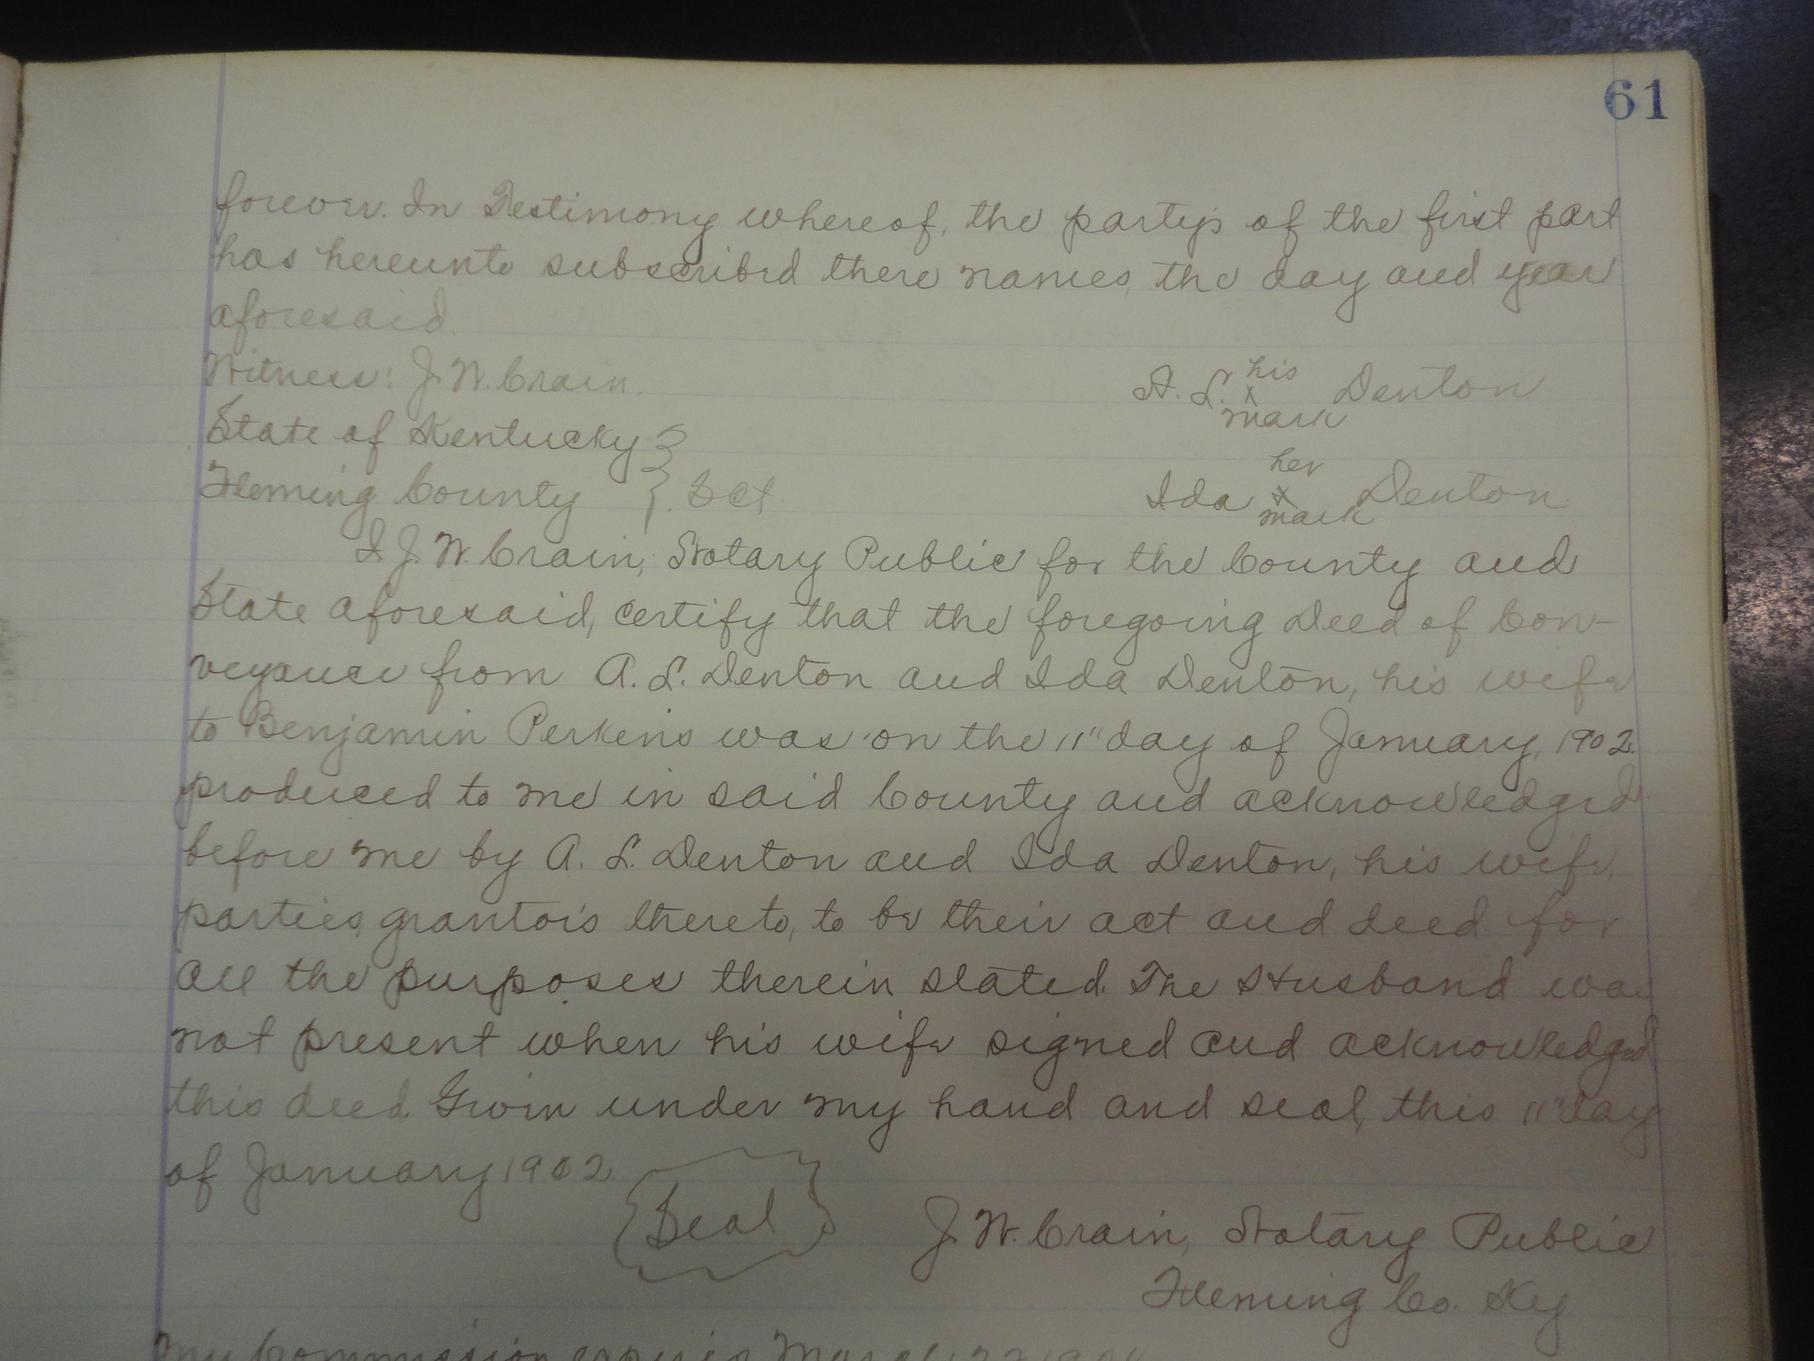 61
forever. In Testimony whereof, the partys of the first part
has hereunto subscribed there names, the day and year
aforesaid.
Witness: J. W. Crain.
A. L. his x mark Denton
State of Kentucky }
Fleming County } Sct.
Ida her x mark Denton
I J. W. Crain, Notary Public for the County and
State aforesaid, certify that the foregoing Deed of Con-
veyance from A. L. Denton and Ida Denton, his wife
to Benjamin Perkins was on the 11" day of January, 1902.
produced to me in said County and acknowledged
before me by A. L. Denton and Ida Denton, his wife,
parties grantors thereto, to be their act and deed for
all the purposes therein stated. The Husband was
not present when his wife signed and acknowledged
this deed. Given under my hand and seal, this 11" day
of January 1902
{Seal}
J. W. Crain, Notary Public
Fleming Co. Ky
My Commission expires March 22